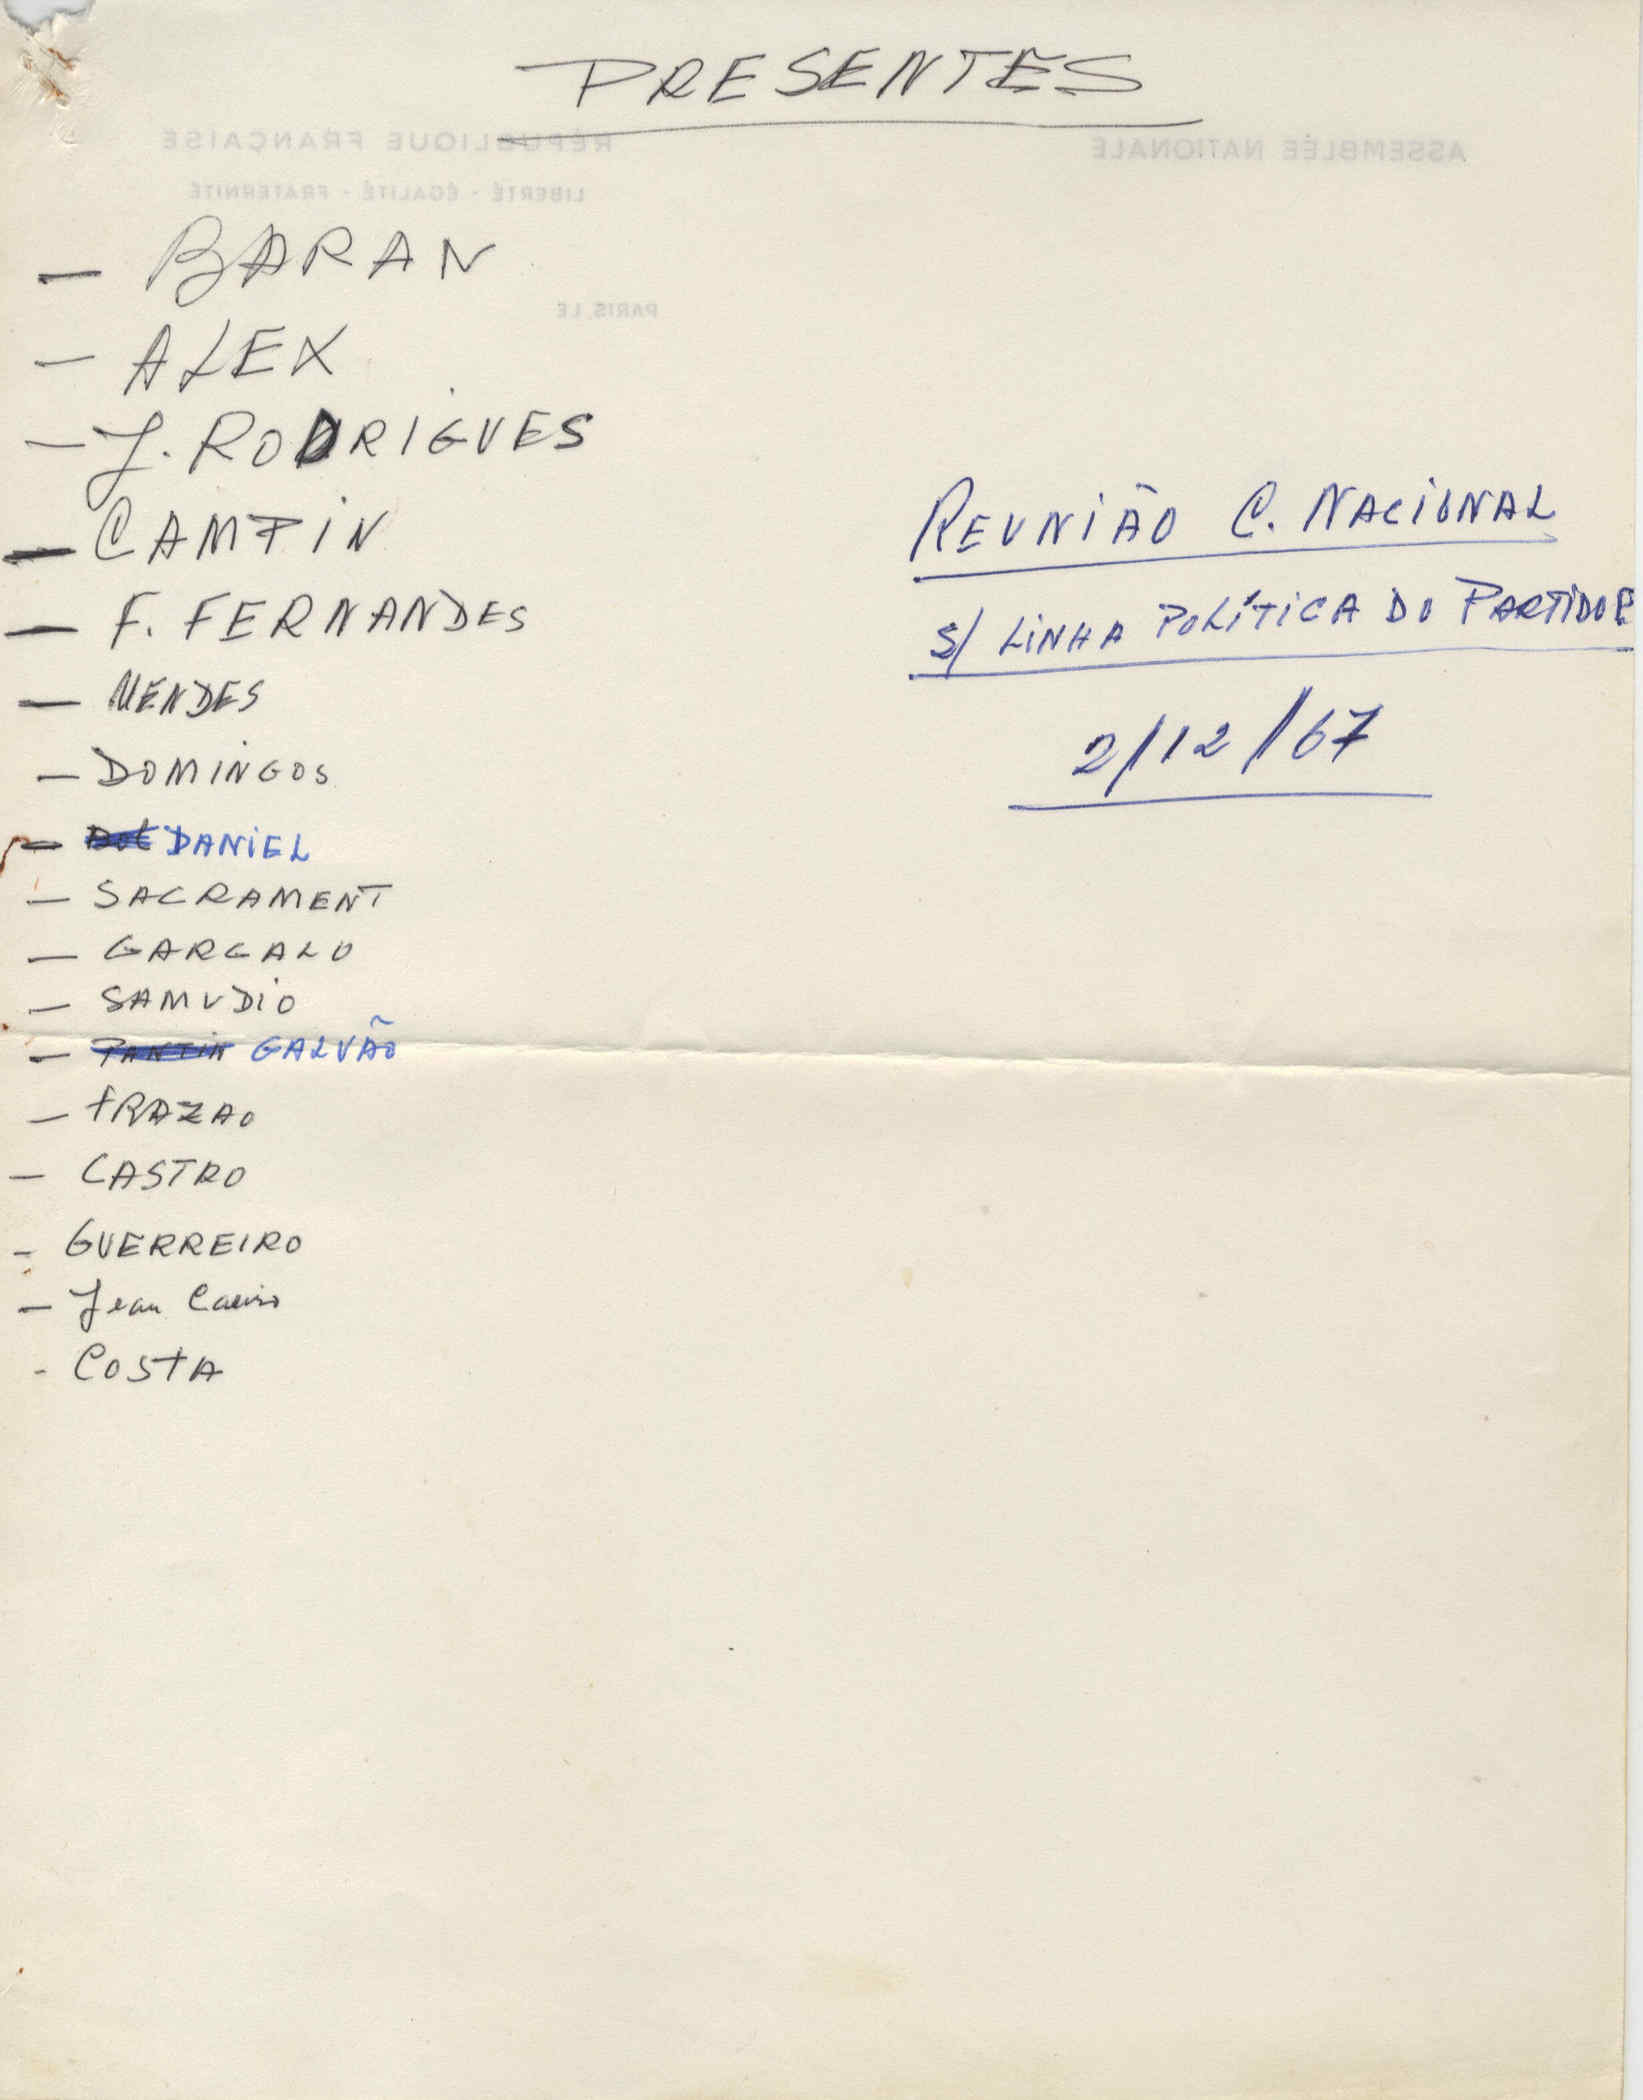 PRESENTES
RÉPUBLIQUE FRANÇAISE
LIBERTÉ - ÉGALITÉ - FRATERNITÉ
ASSEMBLÉE NATIONALE
PARIS, LE
— BARAN
— ALEX
— J. RODRIGUES
— CAMPIN
— F. FERNANDES
— MENDES
— DOMINGOS
— DANIEL
— SACRAMENT
— GARGALO
— SAMUDIO
— GALVÃO
— FRAZAO
— CASTRO
- GUERREIRO
— Jean
- COSTA
REUNIÃO C. NACIONAL
S/ LINHA POLÍTICA DO PARTIDO
2/12/67